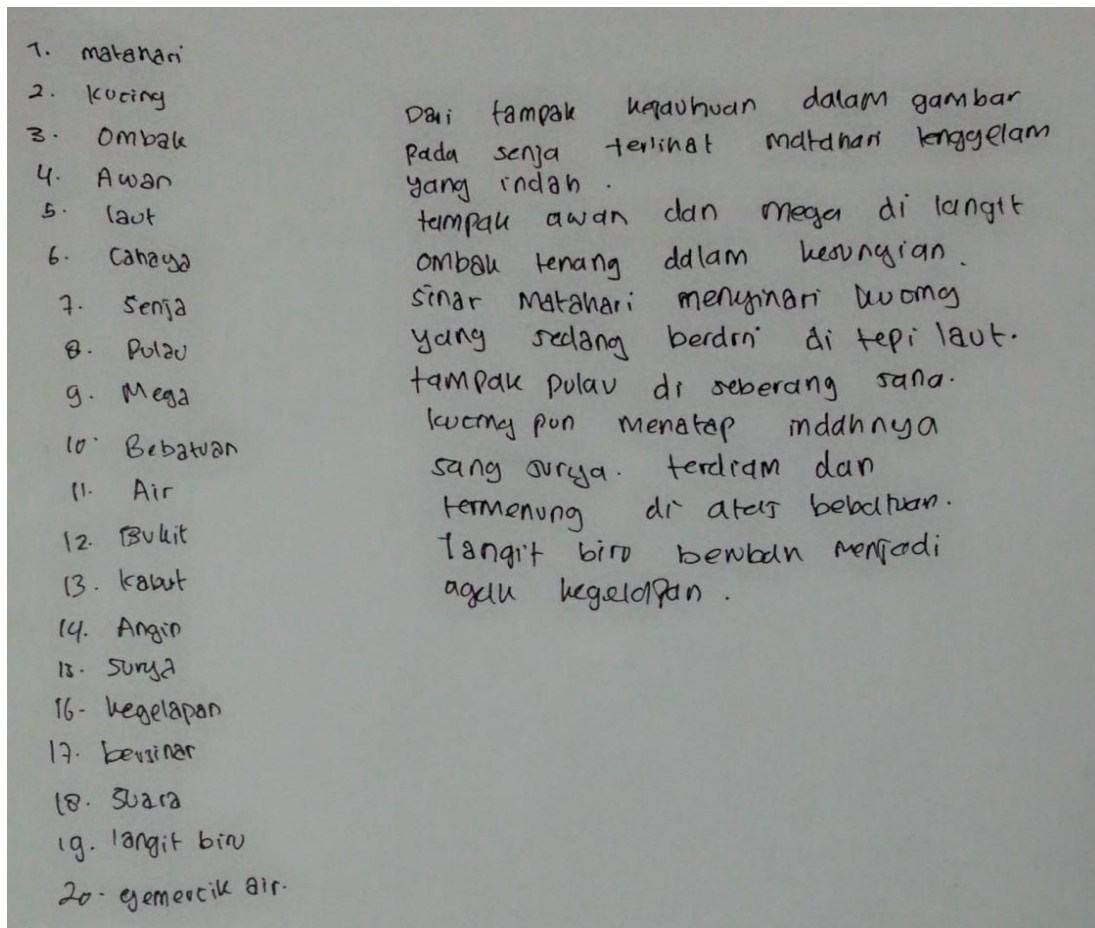 1. matahari
2. kucing
3. Ombak
4. Awan
5. laut
6. Cahaya
7. Senja
8. Pulau
9. Mega
10. Bebatuan
11. Air
12. Bukit
13. kabut
14. Angin
15. surya
16- kegelapan
17. bersinar
18. Suara
19. langit biru
20. gemercik air.
Dari tampak kejauhuan dalam gambar
Pada senja terlihat matahari tenggelam
yang indah.
tampak awan dan mega di langit
ombak tenang dalam kesungian.
sinar Matahari menyinari kucing
yang sedang berdiri di tepi laut.
tampak pulau di seberang sana.
kucing pun menatap indahnya
sang surya. terdiam dan
termenung di atas bebatuan.
langit biru berubah menjadi
agak kegelapan.